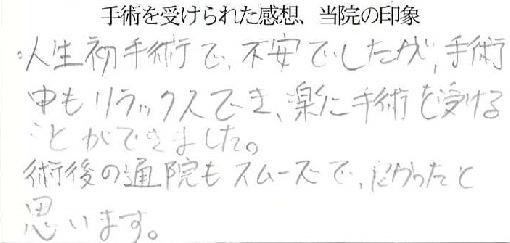 手術を受けられた感想、当院の印象
人生初手術で、不安でしたが、手術
中もリラックスでき、楽に手術を受ける
ことができました。
術後の通院もスムーズで、良かったと
思います。